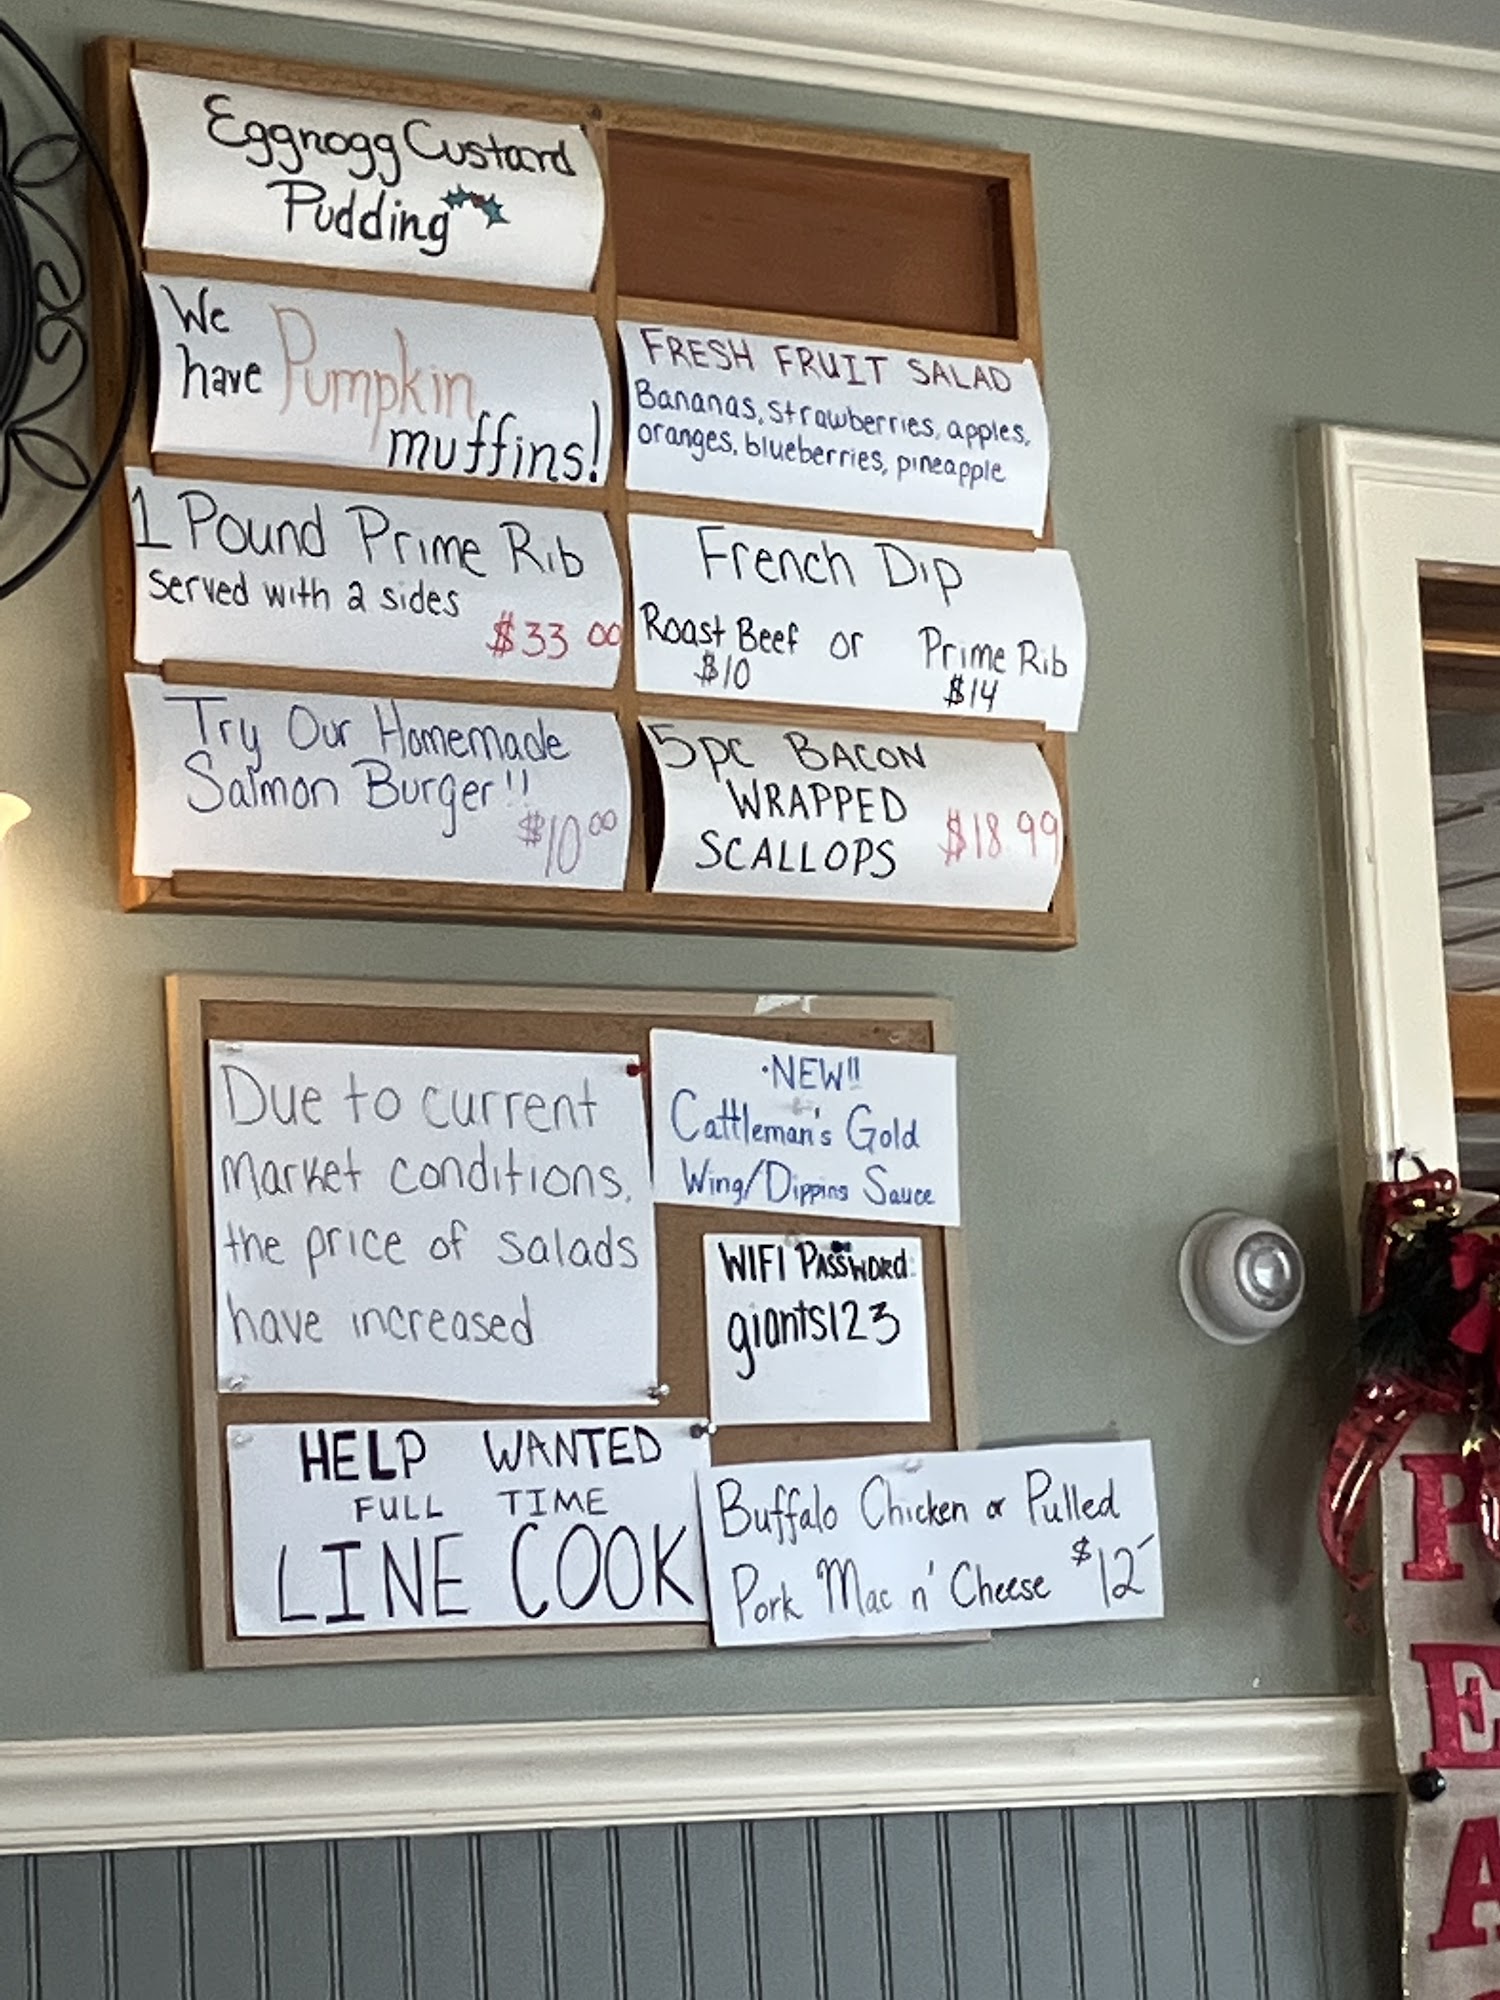 Eggnogg Custard
Pudding
We
have Pumpkin
muffins!
FRESH FRUIT SALAD
Bananas, strawberries, apples,
oranges, blueberries, pineapple
1 Pound Prime Rib
served with 2 sides
$33 00
French Dip
Roast Beef or Prime Rib
$10 $14
Try Our Homemade
Salmon Burger!!
$10 00
5pc BACON
WRAPPED
SCALLOPS $18.99
Due to current
market conditions,
the price of salads
have increased
·NEW!!
Cattleman's Gold
Wing/Dipping Sauce
WIFI PASSWORD:
giants123
HELP WANTED
FULL TIME
LINE COOK
Buffalo Chicken or Pulled
Pork Mac n' Cheese $12
P
E
A